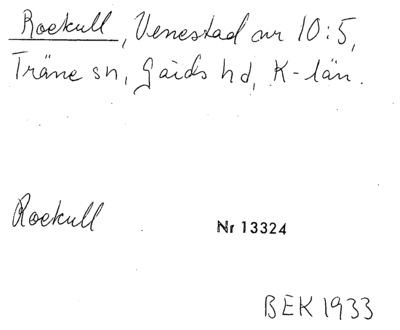 Roekull, Venestad nr 10:5,
Träne sn, Gärds hd, K-län.
Roekull
Nr 13324
BEK 1933